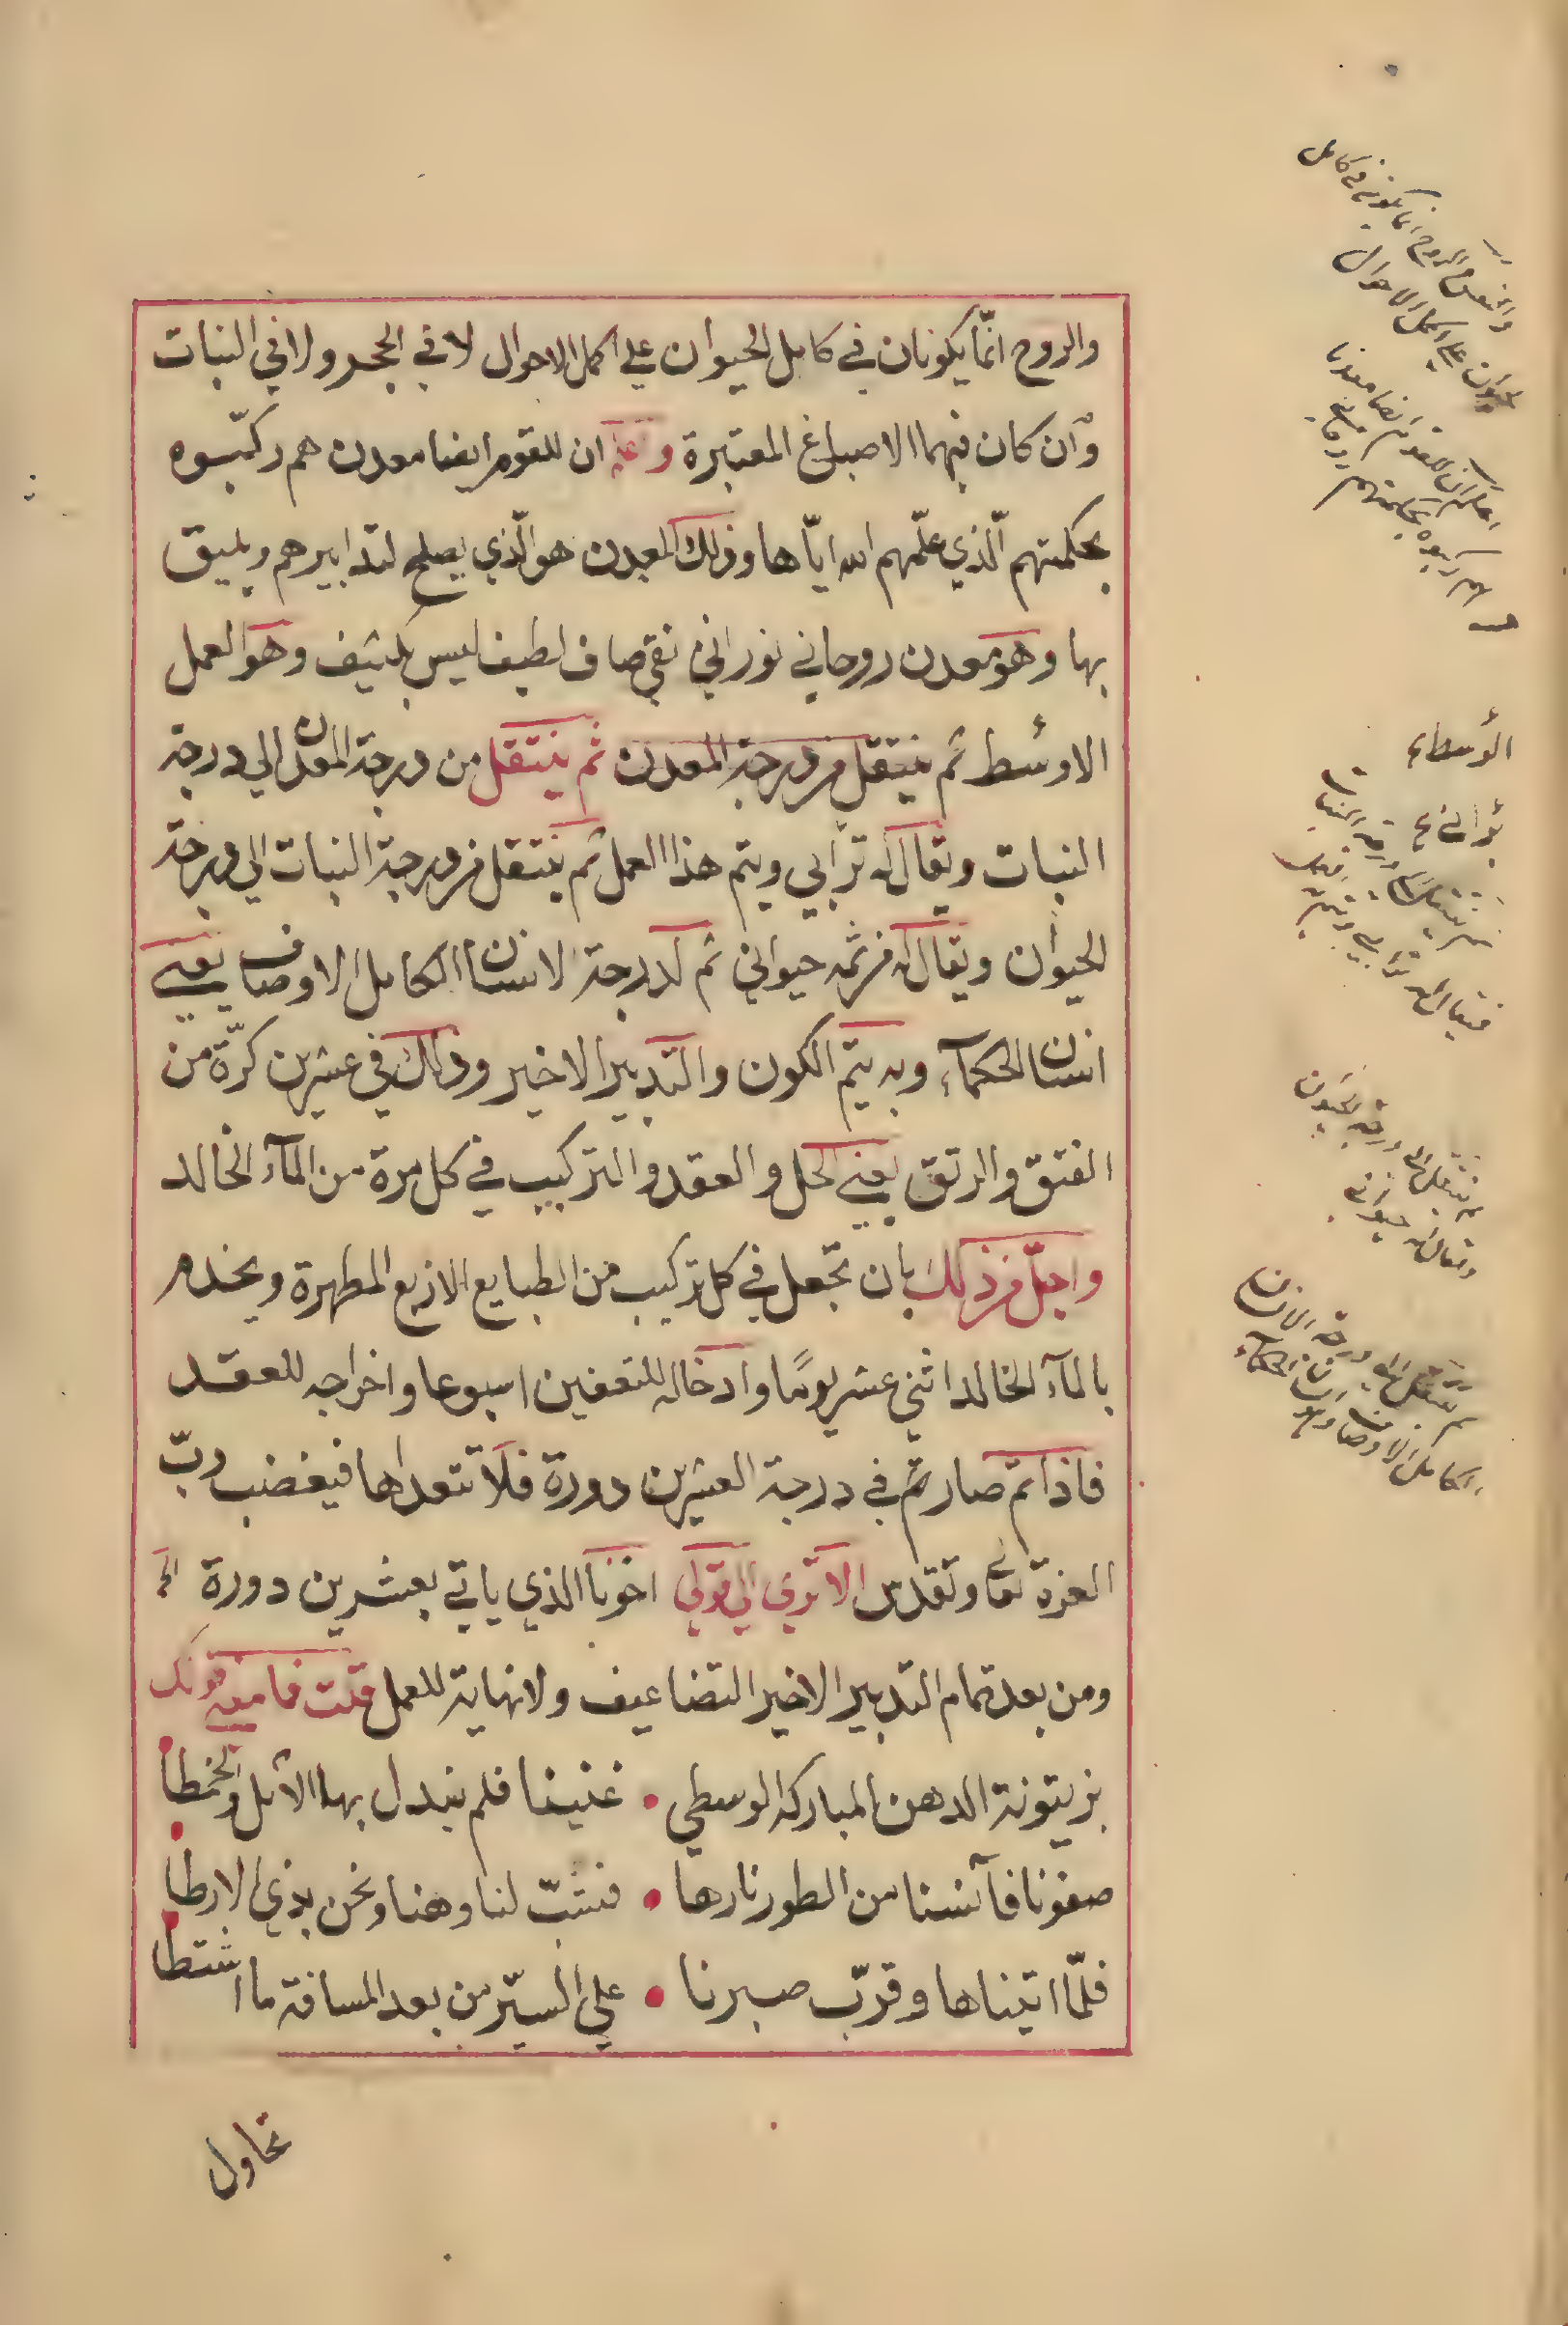 والروح انّما يكونان في كامل الحيوان علي اكمل الاحوال لا في الحجر ولا في النبات
وان كان فيهما الاصباغ المعتبرة واعلم ان للقوم ايضا معدن هم ركّبوه
بحكمتهم الّذي علّمهم الله ايّاها وذلك المعدن هو الّذي يصلح لتدابيرهم ويليق
بها وهو معدن روحاني نوراني نقي صاف لطيف ليس بكثيف وهو العمل
الاوسط ثم ينتقل من درجة المعدن ثم ينتقل من درجة المعدن الي درجة
النبات ويقال له ترابي ويتم هذا العمل ثم ينتقل من درجة النبات الي درجة
الحيوان ويقال له من ثمه حيواني ثم له درجة الانسان الكامل الاوصاف يعني
انسان الحكمآء وبه يتم الكون والتدبير الاخير وذلك في عشرين كرّة من
الفتق والرتق يعني الحل والعقد والتركيب في كل مرة من المآء الخالد
واجلّ من ذلك بان تجعل في كل تركيب من الطبايع الاربع المطهرة ويخدم
بالمآء الخالد اثني عشر يومًا وادخاله للتعفين اسبوعا واخراجه للعقد
فاذا تم صار تم في درجة العشرين دورة فلا تتعداها فيغضب ربّ
العزة تعا وتقدس الا تري الي قولي اخونا الذي ياتي بعشرين دورة الخ
ومن بعد تمام التدبير الاخير التضاعيف ولا نهاية للعمل قلت فما معني قولك
بزيتونة الدهن المباركة الوسطي • غنينا فلم نبدل بها الاثل والخمطا
صفونا فآنسنا من الطور نارها • فشبّت لنا وهنا ونحن بذي الارطا
فلمّا اتيناها وقرّب صبرنا • علي السيّر من بعد المسافة ما اشتطا
تحاول
والنفس والروح انما يكونان في كامل
الحيوان علي اكمل الاحوال
اعلم ان للقوم ايضا معدنا
هم ركبوه بحكمتهم
الوسطاء
ثم ينتقل الي درجة النبات
فيقال له ترابي ويتم به العمل
ثم ينتقل الي درجة الحيوان
ويقال له حيواني
ثم ينتقل الي درجة الانسان
الكامل الاوصاف وهو انسان الحكمآء